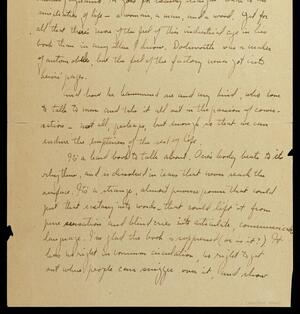 incidentals of life - a woman, a man, and a wood. Yet for
all that there's more of the feel of this industrial age in his
book than in any other I know. Dodsworth was a maker
of automobiles but the feel of the factory never got into
his page.
And how he hammered me and my kind, who love
to talk to men and take it all out in the passion of conver-
sation - not all, perhaps, but enough so that we can
endure the emptiness of the rest of life.
It's a hard book to talk about. One's body beats to its
rhythm, and is dissolved in tears that never reach the
surface. It's a strange, almost power that could
put that ecstasy into words, that could lift it from
pure sensation and blind cries into articulate, communicable
language. I'm glad the book is suppressed (or is it?) It
has no right in common circulation, no right to get
out where people can snigger over it, and show